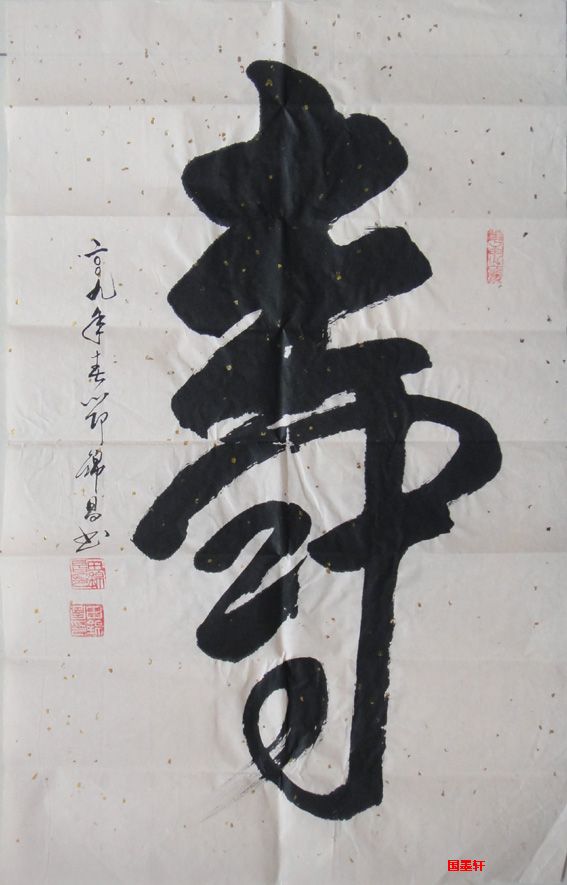 壽
二〇〇九年春節錦昌书
国墨轩